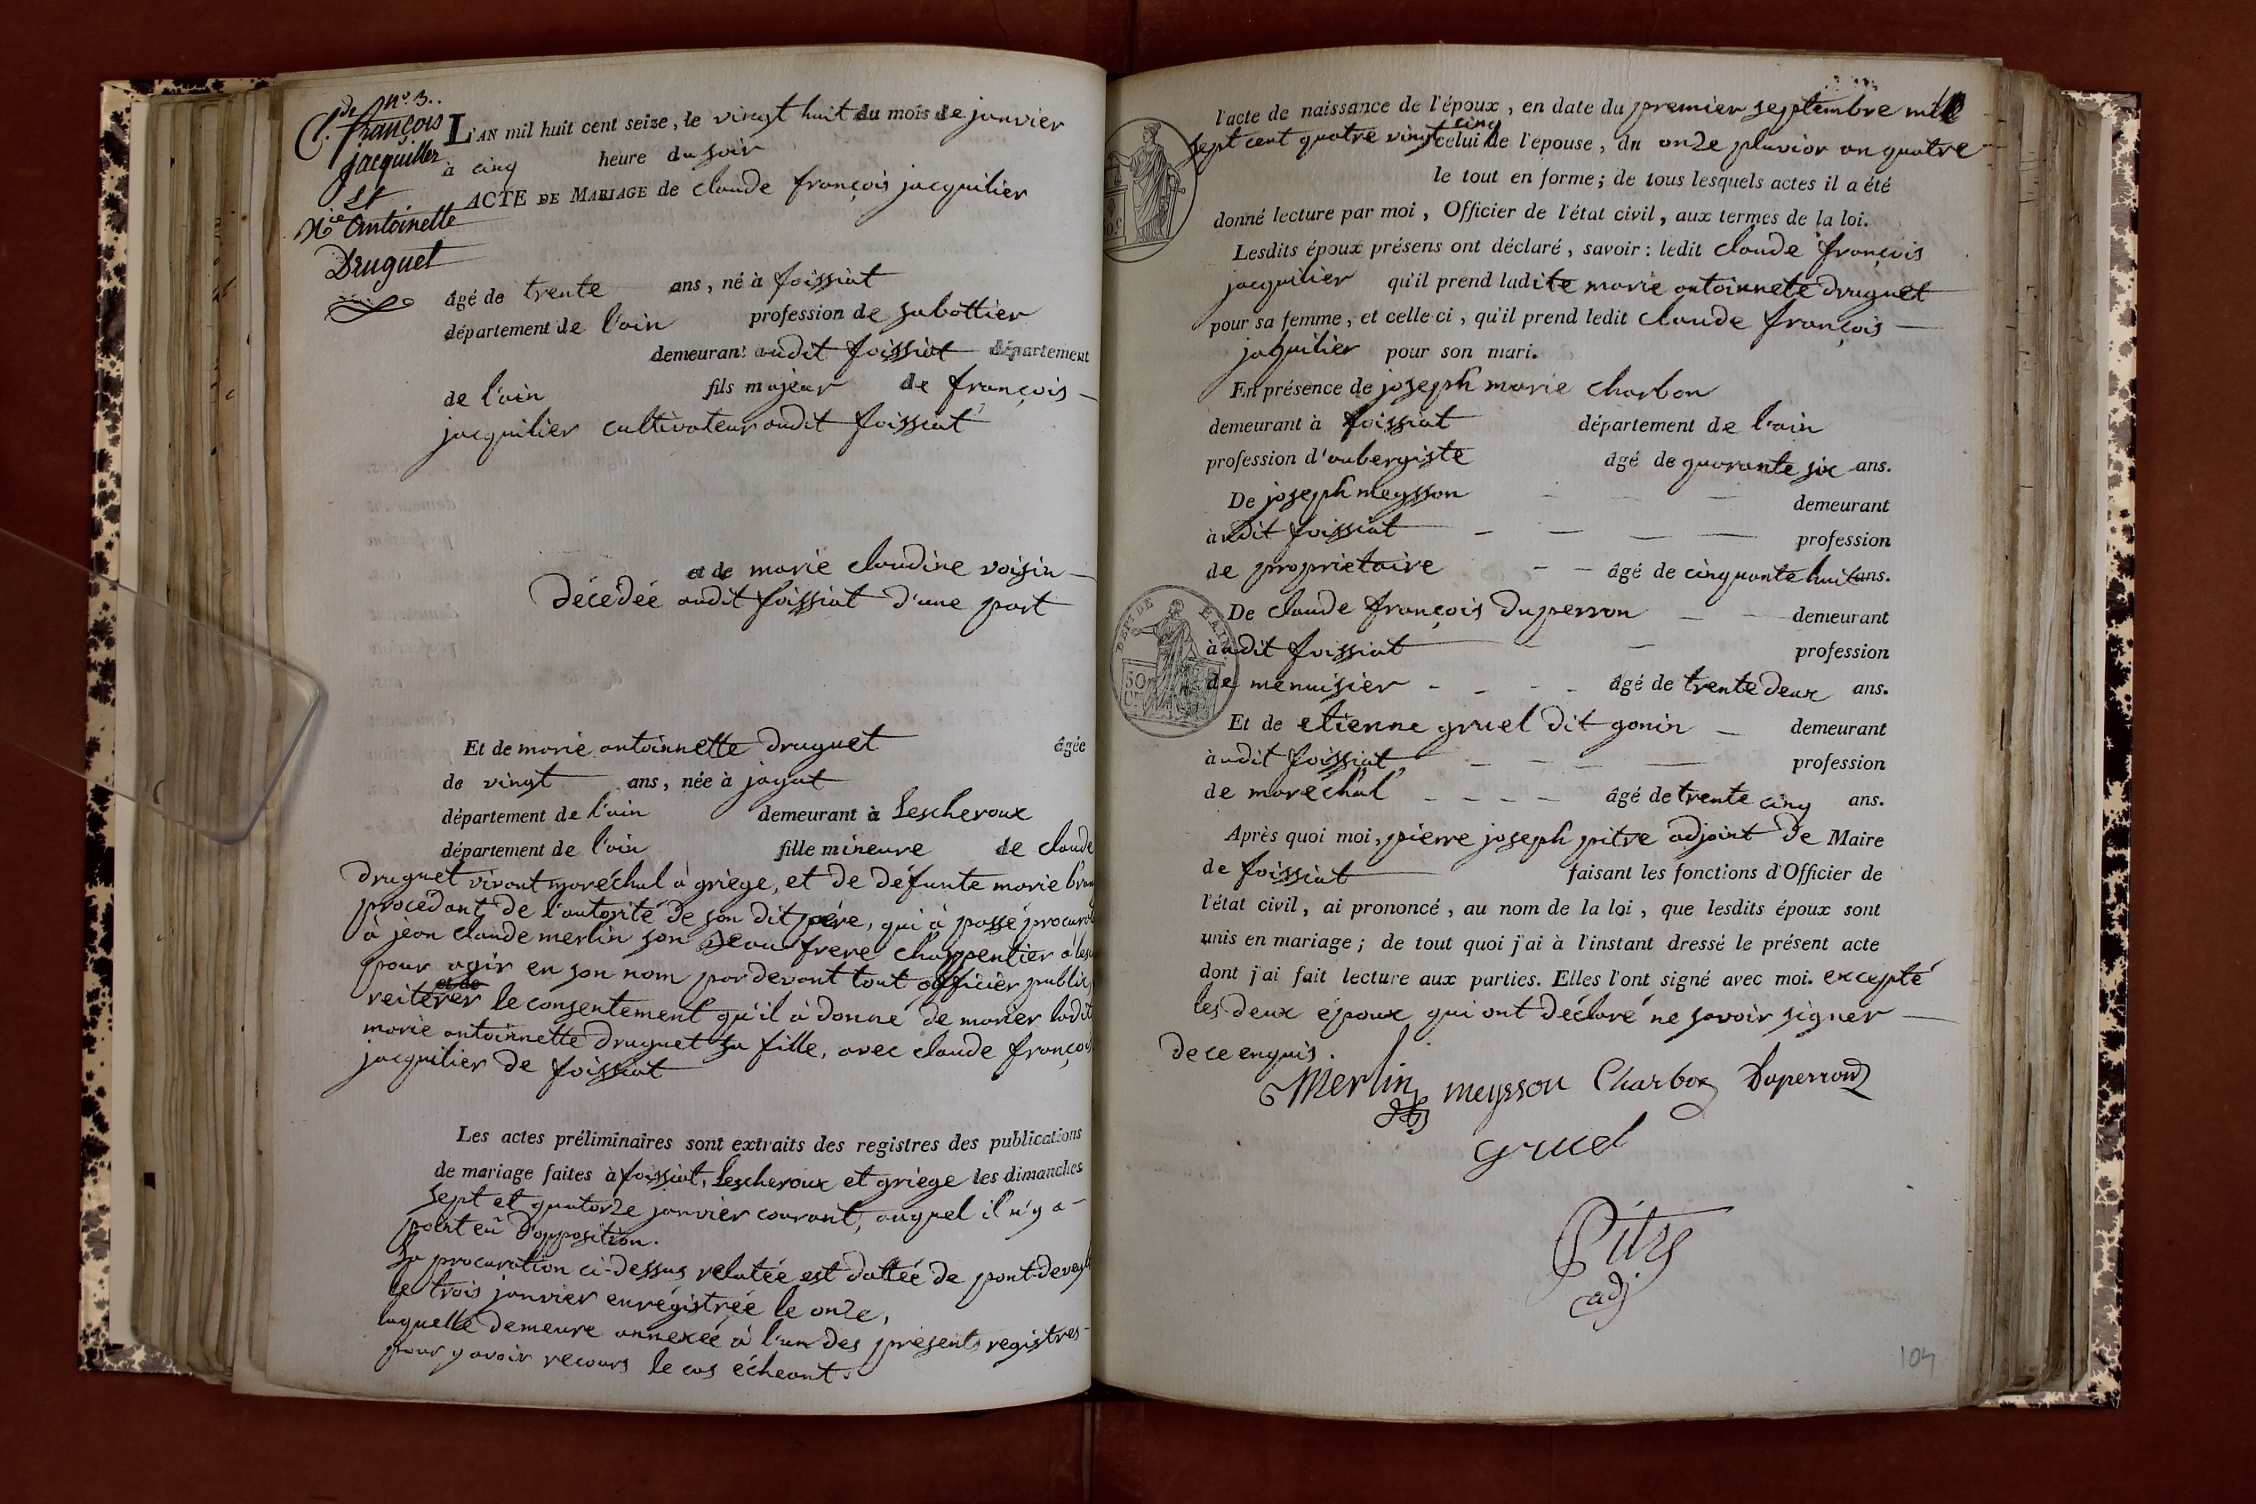 nº. 3.
C.de françois
jacquiller
Et
M.ie Antoinette
Druguet
L'AN mil huit cent seize, le vingt huit du mois de janvier
à cinq heure du soir
ACTE DE MARIAGE de claude françois jacquilier
âgé de trente ans, né à foissiat
département de l'ain profession de sabottier
demeurant audit foissiat département
de l'ain fils majeur de françois
jacquilier cultivateur audit foissiat
et de marie claudine voisin
décédée audit foissiat d'une part
Et de marie antoinnette druguet âgée
de vingt ans, née à jayat
département de l'ain demeurant à Lescheroux
département de l'ain fille mineure de claude
druguet vivant maréchal à griège, et de défunte marie
procédant de l'autorité de son dit père, qui à passé
à jean claude merlin son Beau frere charpentier à
pour agir en son nom pardevant tout officier public
reiterer le consentement qu'il à donné de marier ladit
marie antoinnette druguet sa fille, avec claude françois
jacquilier de foissiat
Les actes préliminaires sont extraits des registres des publications
de mariage faites à foissiat, Lescheroux et griège les dimanches
sept et quatorze janvier courant, auquel il n'y a
point eû d'opposition.
La procuration ci-dessus relatée est dattée de pont-deveyle
le trois janvier enrégistrée le onze,
laquelle demeure annexée à l'un des présents registres
pour y avoir recours le cas échéant.
l'acte de naissance de l'époux, en date du premier septembre mil
sept cent quatre vingt cinq celui de l'épouse, du onze pluvior an quatre
le tout en forme; de tous lesquels actes il a été
donné lecture par moi, Officier de l'état civil, aux termes de la loi.
Lesdits époux présens ont déclaré, savoir: ledit claude françois
jacquilier qu'il prend ladite marie antoinnete druguet
pour sa femme, et celle-ci, qu'il prend ledit claude françois
jaquilier pour son mari.
En présence de joseph marie charbon
demeurant à foissiat département de l'ain
profession d'aubergiste âgé de quarante six ans.
De joseph meysson demeurant
audit foissiat profession
de proprietaire âgé de cinquante huit ans.
De claude françois duperron demeurant
audit foissiat profession
de menuisier âgé de trente deux ans.
Et de etienne gruel dit gonin demeurant
audit foissiat profession
de maréchal âgé de trente cinq ans.
Après quoi moi, pierre joseph pitre adjoint de Maire
de foissiat faisant les fonctions d'Officier de
l'état civil, ai prononcé, au nom de la loi, que lesdits époux sont
unis en mariage; de tout quoi j'ai à l'instant dressé le présent acte
dont j'ai fait lecture aux parties. Elles l'ont signé avec moi. excepté
les deux époux qui ont déclaré ne savoir signer
de ce enquis.
Merlin meysson Charbon Duperron
gruel
Pitre
adj
104